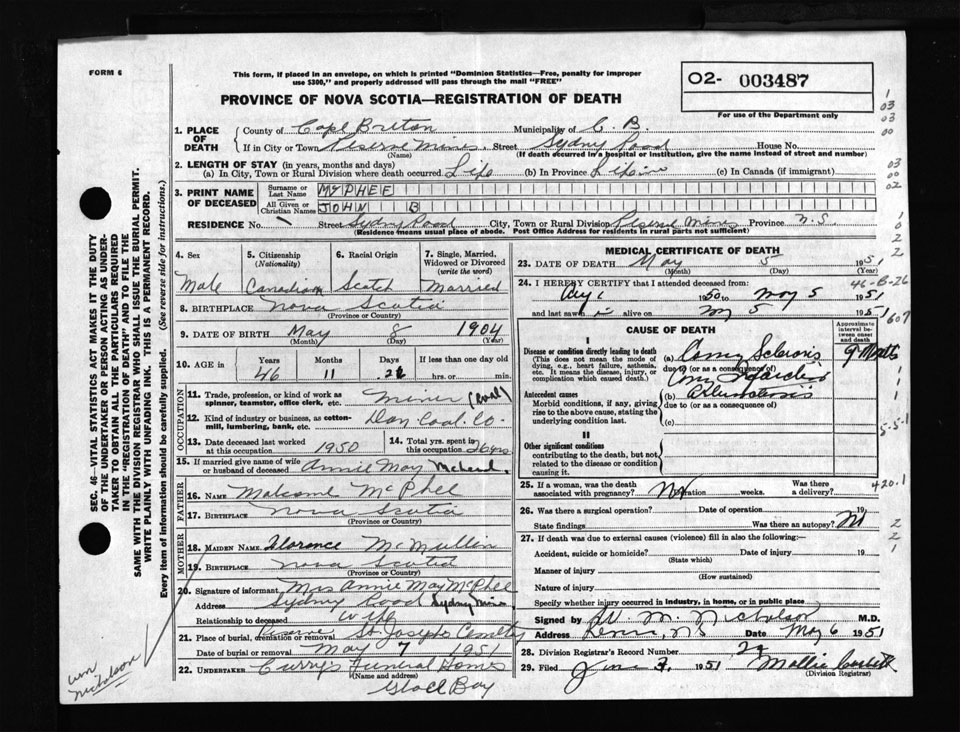 FORM 6
This form, if placed in an envelope, on which is printed "Dominion Statistics—Free, penalty for improper
use $300," and properly addressed will pass through the mail "FREE"
02- 003487
For use of the Department only
PROVINCE OF NOVA SCOTIA—REGISTRATION OF DEATH
1. PLACE OF DEATH
County of Cape Breton Municipality of C. B.
If in City or Town Reserve Mines Street Sydney Road House No.
(Name) (If death occurred in a hospital or institution, give the name instead of street and number)
2. LENGTH OF STAY (in years, months and days)
(a) In City, Town or Rural Division where death occurred Life (b) In Province Life (c) In Canada (if immigrant)
3. PRINT NAME OF DECEASED
Surname or Last Name MCPHEE
All Given or Christian Names JOHN B
RESIDENCE No. Street Sydney Road City, Town or Rural Division Reserve Mines Province N.S.
(Residence means usual place of abode. Post Office Address for residents in rural parts not sufficient)
4. Sex Male
5. Citizenship (Nationality) Canadian
6. Racial Origin Scotch
7. Single, Married, Widowed or Divorced (write the word) Married
8. BIRTHPLACE Nova Scotia
(Province or Country)
9. DATE OF BIRTH May 8 1904
(Month) (Day) (Year)
10. AGE in Years Months Days If less than one day old
46 11 hrs. or min.
OCCUPATION
11. Trade, profession, or kind of work as spinner, teamster, office clerk, etc. Miner (Coal)
12. Kind of industry or business, as cotton-mill, lumbering, bank, etc. Dom. Coal. Co.
13. Date deceased last worked at this occupation 1950
14. Total yrs. spent in this occupation 26 yrs
15. If married give name of wife or husband of deceased Annie May
FATHER
16. NAME Malcome McPhee
17. BIRTHPLACE Nova Scotia
(Province or Country)
MOTHER
18. MAIDEN NAME Florence McMullin
19. BIRTHPLACE Nova Scotia
(Province or Country)
20. Signature of informant Mrs Annie May McPhee
Address Sydney Road Sydney Mines
Relationship to deceased wife
21. Place of burial, cremation or removal Reserve St Josephs Cemetery
Date of burial or removal May 7 1951
22. UNDERTAKER Curry's Funeral Home
(Name and address)
Glace Bay
MEDICAL CERTIFICATE OF DEATH
23. DATE OF DEATH May 5 1951
(Month) (Day) (Year)
46-B-26
24. I HEREBY CERTIFY that I attended deceased from:
1950 to May 5 1951
and last saw alive on 5 1951
607
CAUSE OF DEATH
Approximate interval between onset and death
I
Disease or condition directly leading to death
(This does not mean the mode of dying, e.g., heart failure, asthenia, etc. It means the disease, injury, or complication which caused death.)
(a) Sclerosis
due to (or as a consequence of)
Antecedent causes
Morbid conditions, if any, giving rise to the above cause, stating the underlying condition last.
(b)
due to (or as a consequence of)
(c)
II
Other significant conditions
contributing to the death, but not related to the disease or condition causing it.
25. If a woman, was the death associated with pregnancy? Duration weeks. Was there a delivery?
420.1
26. Was there a surgical operation? Date of operation 19
State findings Was there an autopsy? No
27. If death was due to external causes (violence) fill in also the following:—
Accident, suicide or homicide? Date of injury 19
(State which)
Manner of injury
(How sustained)
Nature of injury
Specify whether injury occurred in industry, in home, or in public place
Signed by W. M. Nicholson M.D.
Address Date May 6 1951
28. Division Registrar's Record Number 29
29. Filed 1951 Mollie
(Division Registrar)
SEC. 46—VITAL STATISTICS ACT MAKES IT THE DUTY
OF THE UNDERTAKER OR PERSON ACTING AS UNDER-
TAKER TO OBTAIN ALL THE PARTICULARS REQUIRED
IN THE "REGISTRATION OF DEATH" AND TO FILE THE
SAME WITH THE DIVISION REGISTRAR WHO SHALL ISSUE THE BURIAL PERMIT.
WRITE PLAINLY WITH UNFADING INK. THIS IS A PERMANENT RECORD.
Every item of information should be carefully supplied. (See reverse side for instructions.)
wm
Nicholson